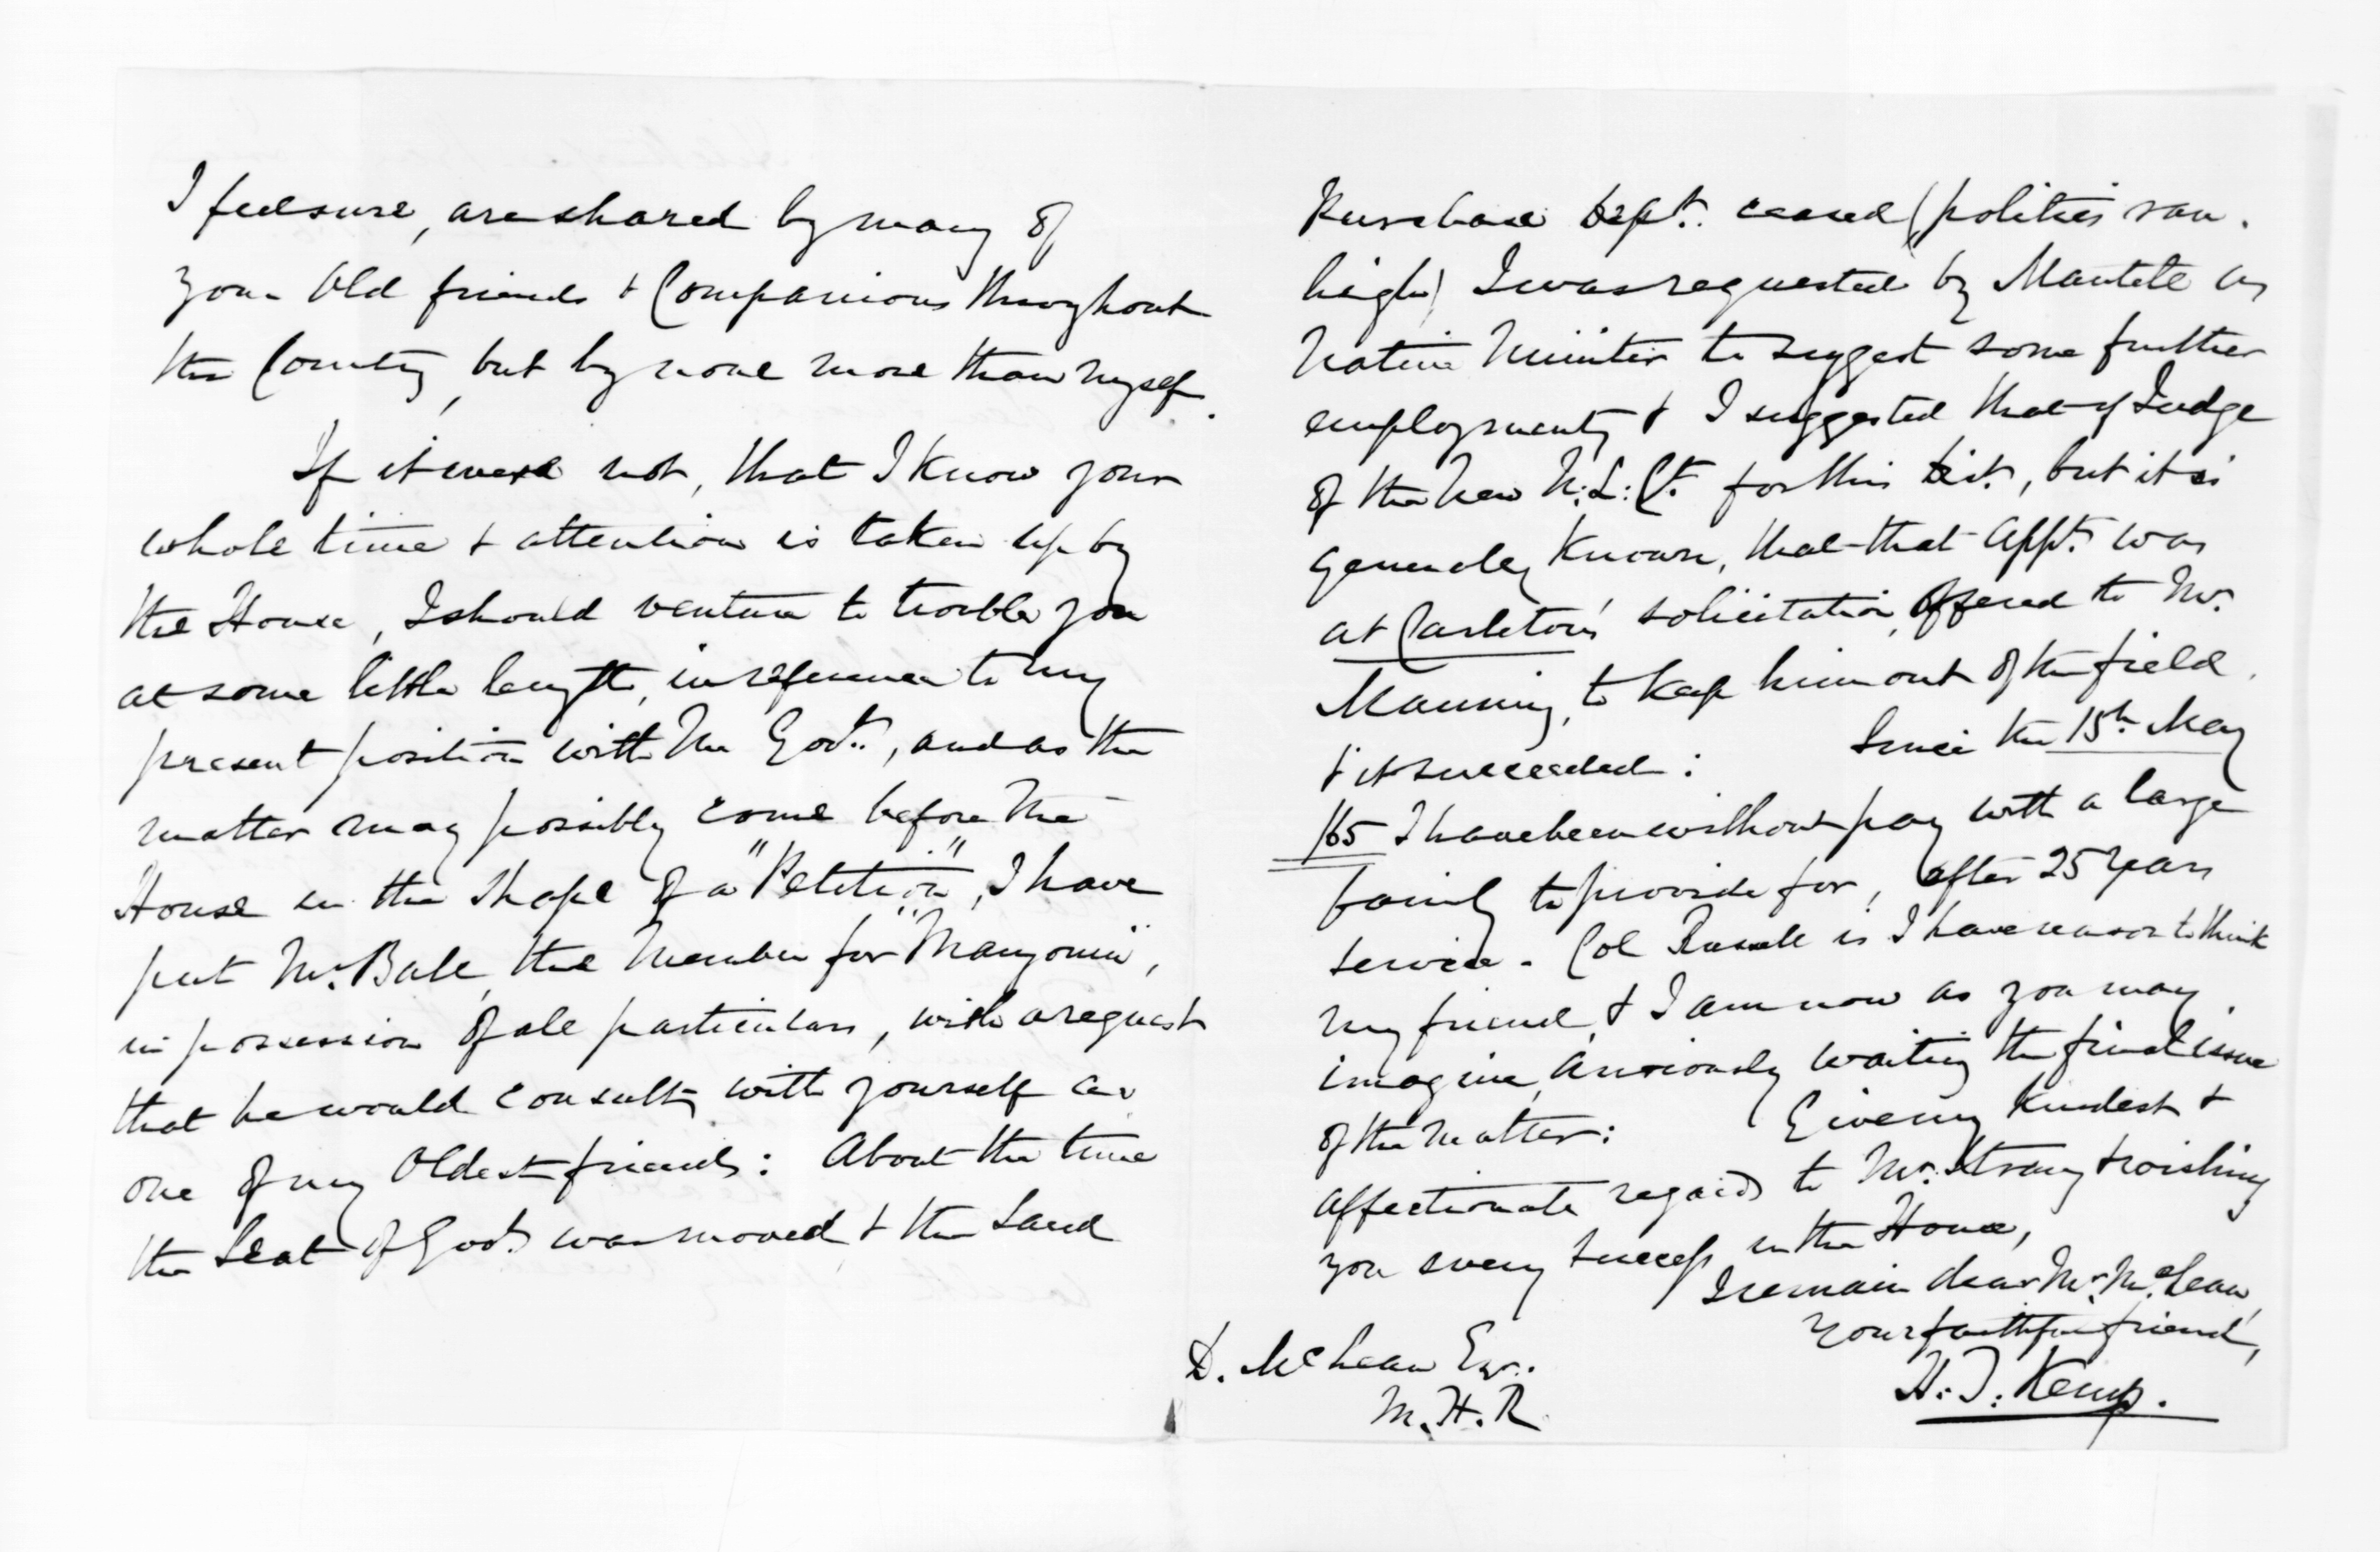 I feel sure, are shared by many of
your Old friends & Companions throughout
the Country, but by none more than myself.
If it were not, that I know your
whole time & attention is taken up by
the House, I should venture to trouble you
at some little length, in reference to my
present position with the Govt., and as the
matter may possibly come before the
House in the shape of a "Petition", I have
put Mr. Ball, the Member for "Mangonui",
in possession of all particulars, with a request
that he would consult with yourself as
one of my Oldest friends: About the time
the Seat of Govt. was moved & the Land
Purchase Dept. ceased (politics ran
high) I was requested by Mantell as
Native Minister to suggest some further
employment, & I suggested that of Judge
of the New N.L.Ct. for this Dist., but it is
generally known, that that appt. was
at Carleton's solicitation, offered to Mr.
Manning, to keep him out of the field,
& it succeeded: Since the 15th. May
/65 I have been without pay with a large
family to provide for, after 25 years
service. Col Russell is I have reason to think
my friend, & I am now as you may
imagine, anxiously waiting the final issue
of the matter: Give my kindest &
affectionate regards to Mr. Strang & wishing
you every success in the House,
I remain dear Mr. McLean,
Your faithful friend,
H.T. Kemp.
D. McLean Esqr.
M.H.R